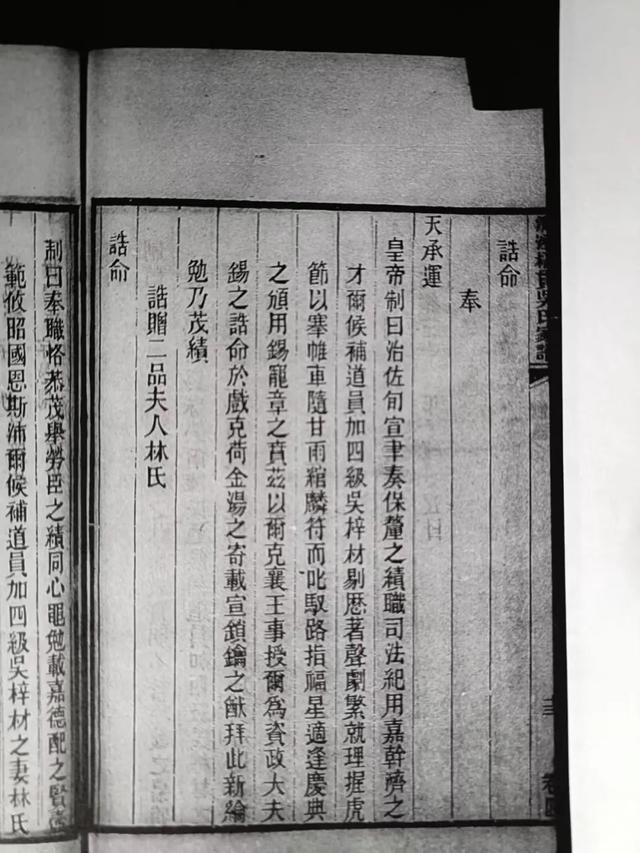 誥命
奉
天承運
皇帝制曰治佐旬宣聿奏保釐之績職司法紀用嘉幹濟之
才爾候補道員加四級吳梓材剔歷著聲劇繁就理握虎
節以塞帷車隨甘雨綰麟符而叱馭路指福星適逢慶典
之頒用錫寵章之賁茲以爾克襄王事授爾為資政大夫
錫之誥命於戲克荷金湯之寄載宣鎖鑰之猷拜此新綸
勉乃茂績
誥贈二品夫人林氏
誥命
制曰奉職恪恭茂舉勞臣之績同心黽勉載嘉德配之賢
範攸昭國恩斯沛爾候補道員加四級吳梓材之妻林氏
吳氏
十三
卷四